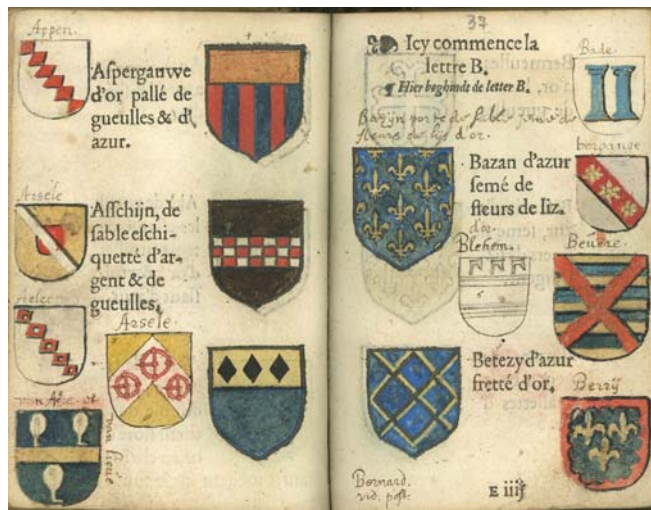 Appen.
Aspergauwe
d'or pallé de
gueulles & d'
azur.
Arsele
Asschijn, de
sable eschi-
quetté d'ar-
gent & de
gueulles.
Aelec
Arsele.
37
Icy commence la
lettre B.
¶ Hier beghindt de letter B.
Bazijn porte de sable semé de
fleurs de lijs d'or.
Bade.
Bazan d'azur
semé de
fleurs de liz.
d'or
borgange
Blehem.
Beuere.
Betezy d'azur
fretté d'or.
Berrÿ
Bernard.
vid. post.
E iiij